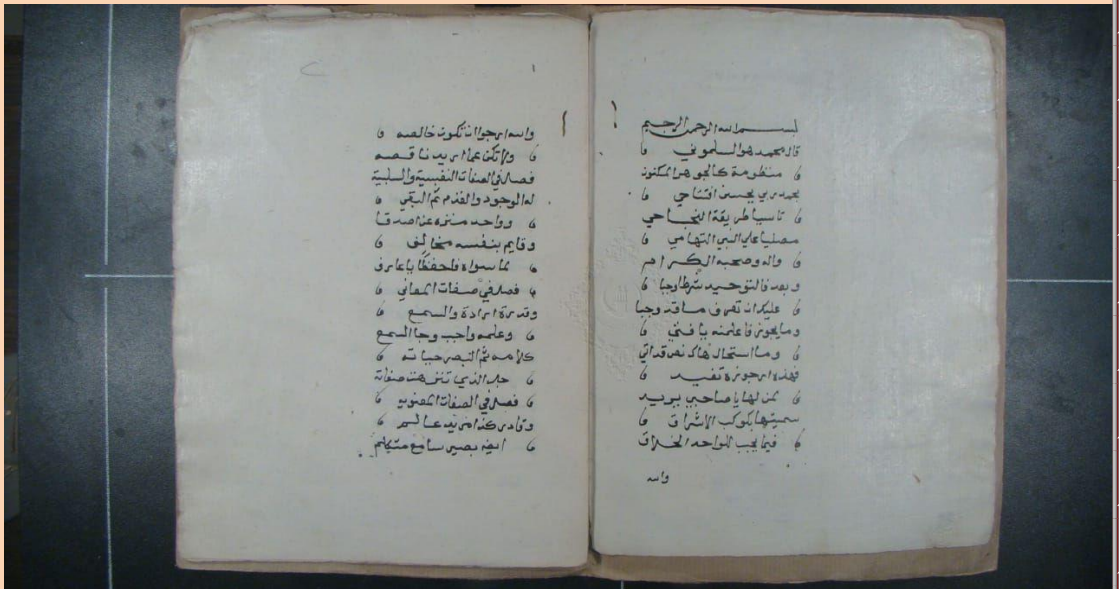 بسم الله الرحمن الرحيم
قال محمد هو السلموني
منظومة كالجوهر المكنون
بحمد ربي يحسن افتتاحي
تاسيا طريقة النجاحي
مصليا علي النبي التهامي
واله وصحبه الكرام
وبعد فالتوحيد شرطا وجبا
عليك ان تعرف ما قد وجبا
وما يجوز فاعلمنه يا فتي
وما استحال هاك نص قداتي
فهذه ارجوزة تفيد
لمن لها يا صاحبي يريد
سميتها بكوكب الاشراق
فيما يجب للواحد الخلاق
والله
والله ارجوا ان تكون خالصه
ولا تكن عما اريد ناقصه
فصل في الصفات النفسية والسلبية
له الوجود والقدم ثم البقي
وواحد منزه عن
وقايم بنفسه مخالف
لما سواه فاحفظا يا عارف
فصل في صفات المعاني
وقدرة ارادة والسمع
وعلمه واجب وجا السمع
كلامه ثم البصر حياته
جل الذي تنزهت صفاته
فصل في الصفات المعنويه
وقادر كذا مريد عالم
ايضا بصير سامع متكلم